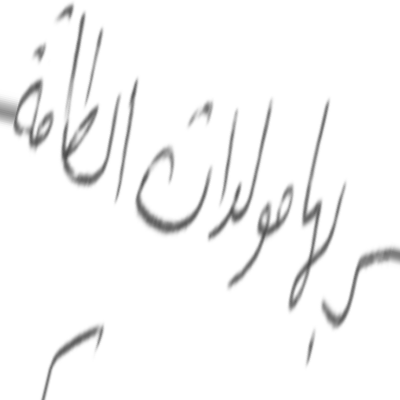 بها مولدات الطاقة